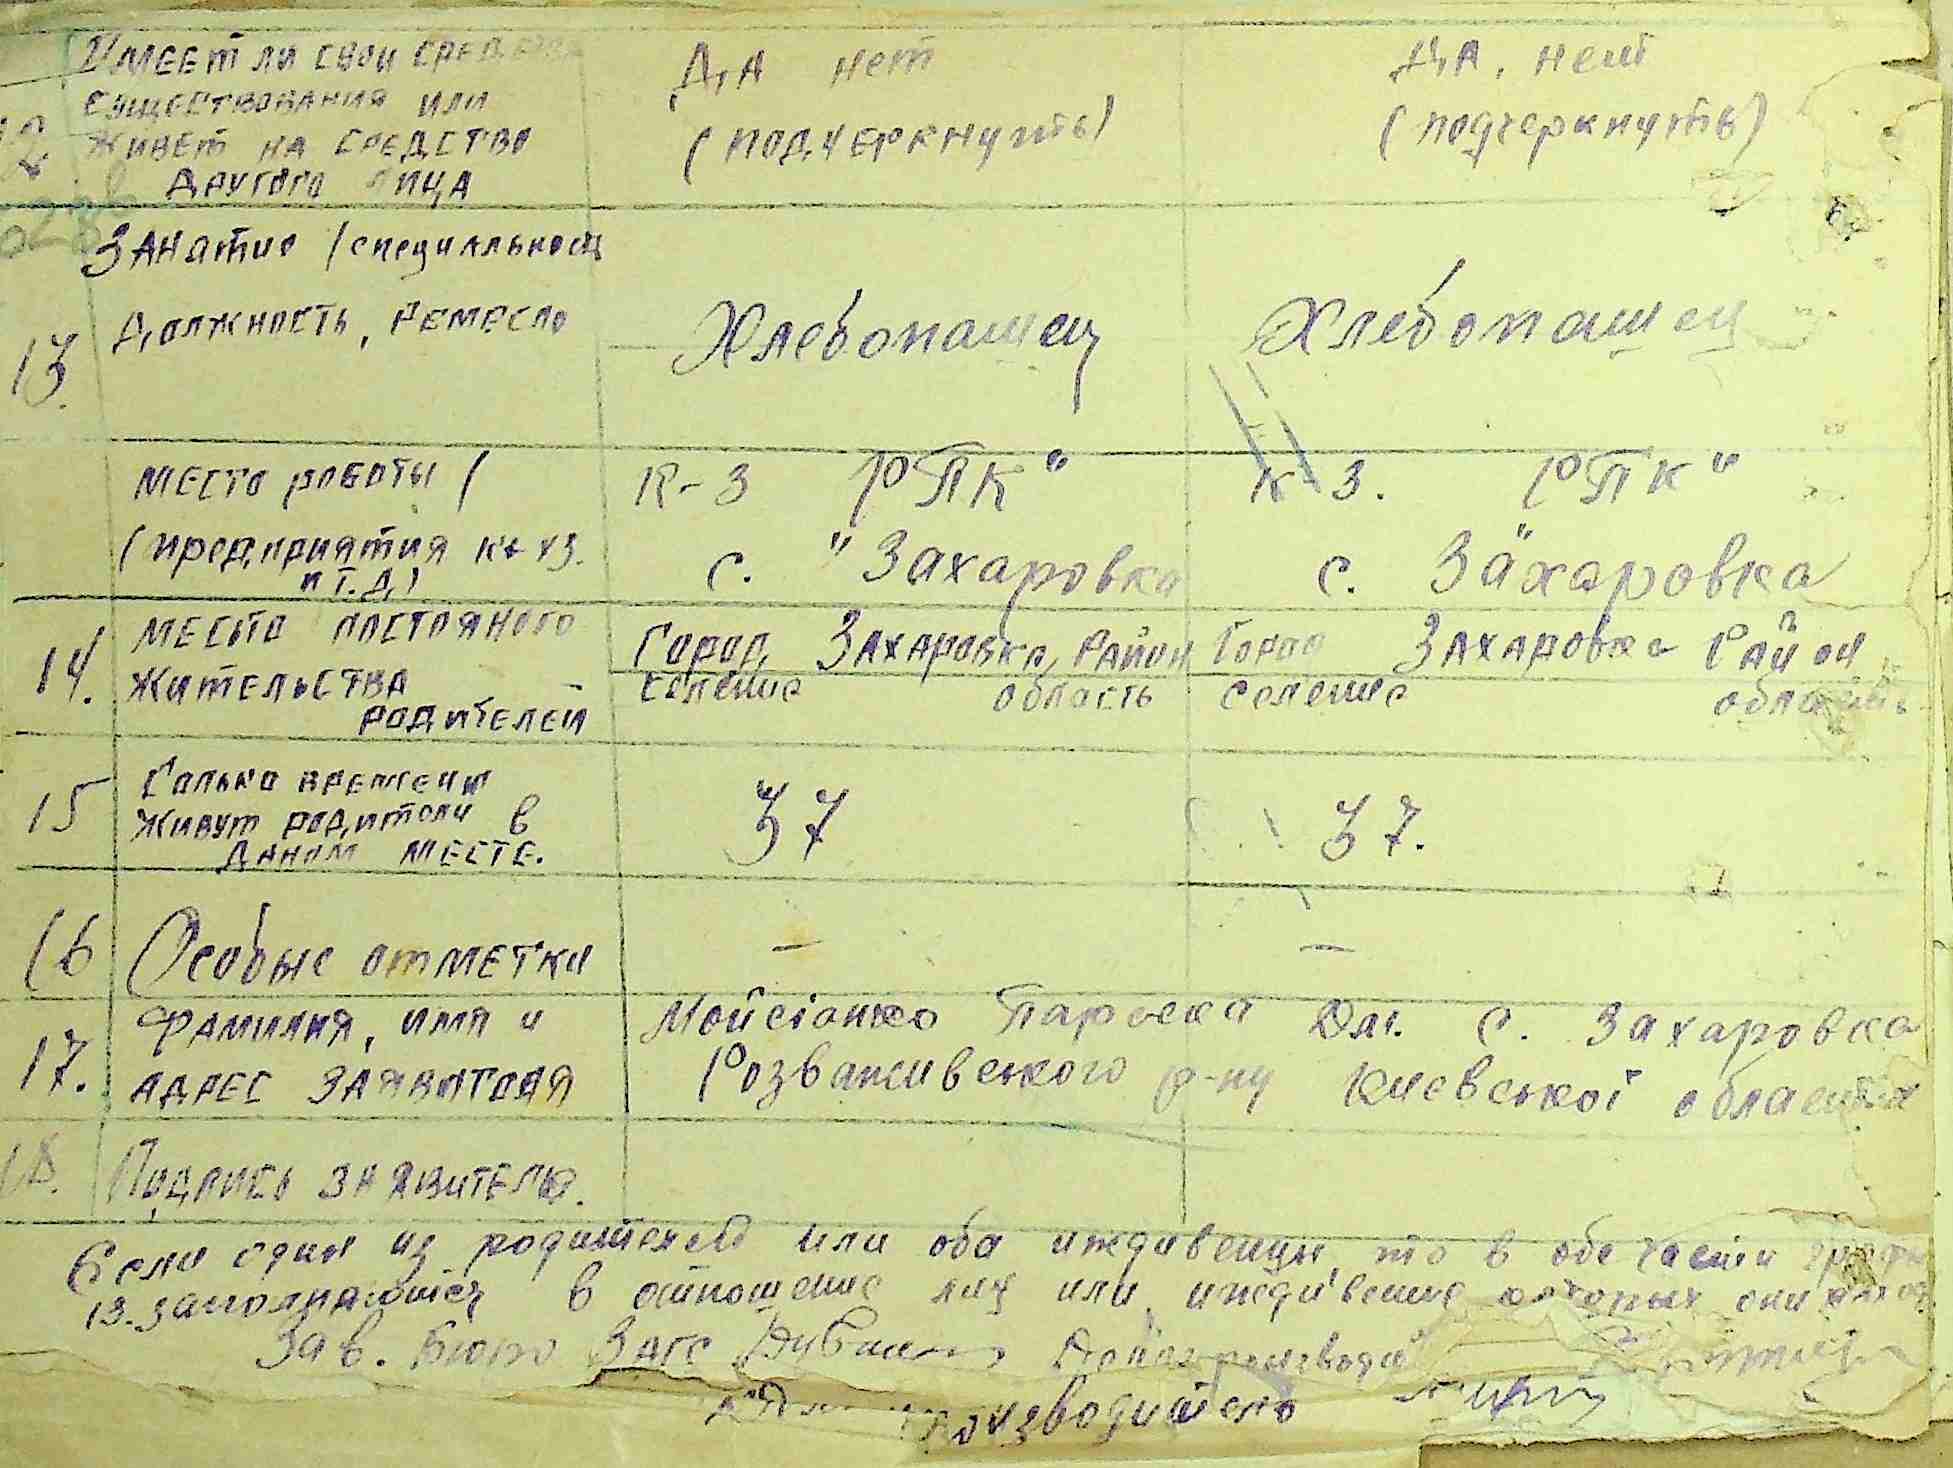 Имеет ли свои средства Да нет Да, нет
существования или
12 живет на средство (подчеркнуть) (подчеркнуть)
другого лица
Занятие (специальност
13. Должность, ремесло Хлебопашец Хлебопашец
Место работы ( К-з РПК" К-з. РПК"
(предприятия к-хз. с. "Захаровка с. "Захаровка
и т.д.)
14. Место постояного Город, Захаровка, Район Город Захаровка Район
жительства селение область селение область
родителей
15 Сколько времени
живут родители в 37 37.
даном месте.
16 Особые отметки — —
17. Фамилия, имя и Мойсіэнко Параска Дм. с. Захаровка
адрес заявителя Розваживського р-ну Киевськоі области
18. Подпись заявителя.
Если один из родителей или оба иждивенцы, то в обе части графы
13. заполняются в отношение лиц или иждивение которых они
Зав. Бюро Загс Делопроизводи
производитель